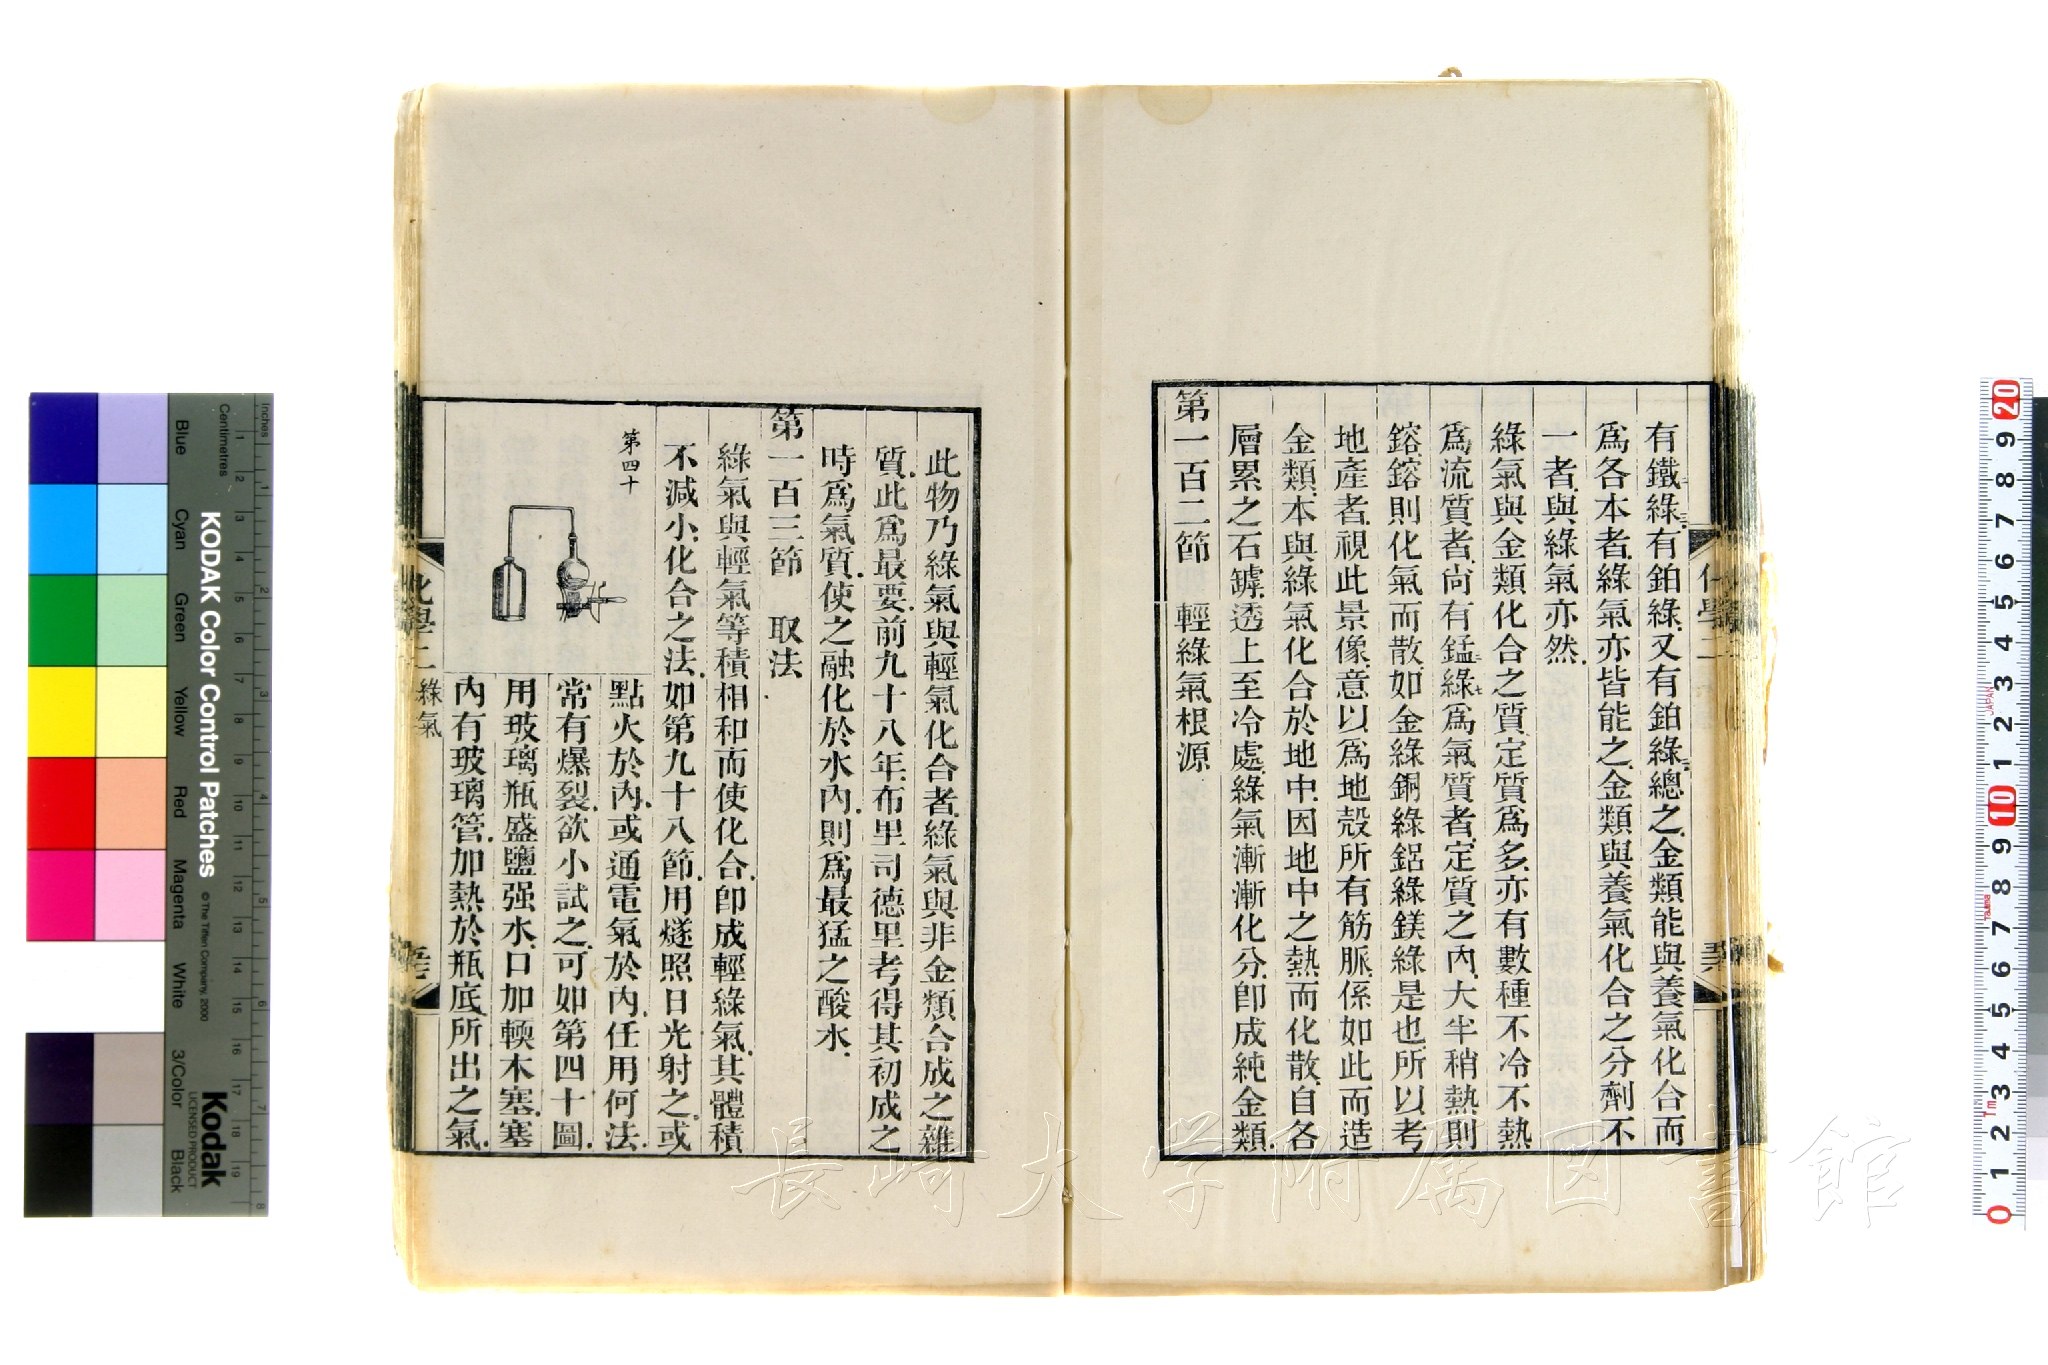 有鐵綠三有鉑綠又有鉑綠二總之金類能與養氣化合而
爲各本者綠氣亦皆能之金類與養氣化合之分劑不
一者與綠氣亦然
綠氣與金類化合之質定質爲多亦有數種不冷不熱
爲流質者尚有錳綠七爲氣質者定質之內大半稍熱則
鎔鎔則化氣而散如金綠銅綠鋁綠鎂綠是也所以考
地產者視此景像意以爲地殼所有筋脈係如此而造
金類本與綠氣化合於地中因地中之熱而化散自各
層累之石罅透上至冷處綠氣漸漸化分卽成純金類
第一百二節 輕綠氣根源
此物乃綠氣與輕氣化合者綠氣與非金類合成之雜
質此爲最要前九十八年布里司德里考得其初成之
時爲氣質使之融化於水內則爲最猛之酸水
第一百三節 取法
綠氣與輕氣等積相和而使化合卽成輕綠氣其體積
不減小化合之法如第九十八節用燧照日光射之或
第四十
點火於內或通電氣於內任用何法
常有爆裂欲小試之可如第四十圖
用玻璃瓶盛鹽强水口加輭木塞塞
內有玻璃管加熱於瓶底所出之氣
化學二 綠氣
化學二
長崎大学附属図書館
KODAK Color Control Patches
© The Tiffen Company, 2000
Kodak
LICENSED PRODUCT
Inches
Centimetres
Blue
Cyan
Green
Yellow
Red
Magenta
White
3/Color
Black
JAPAN